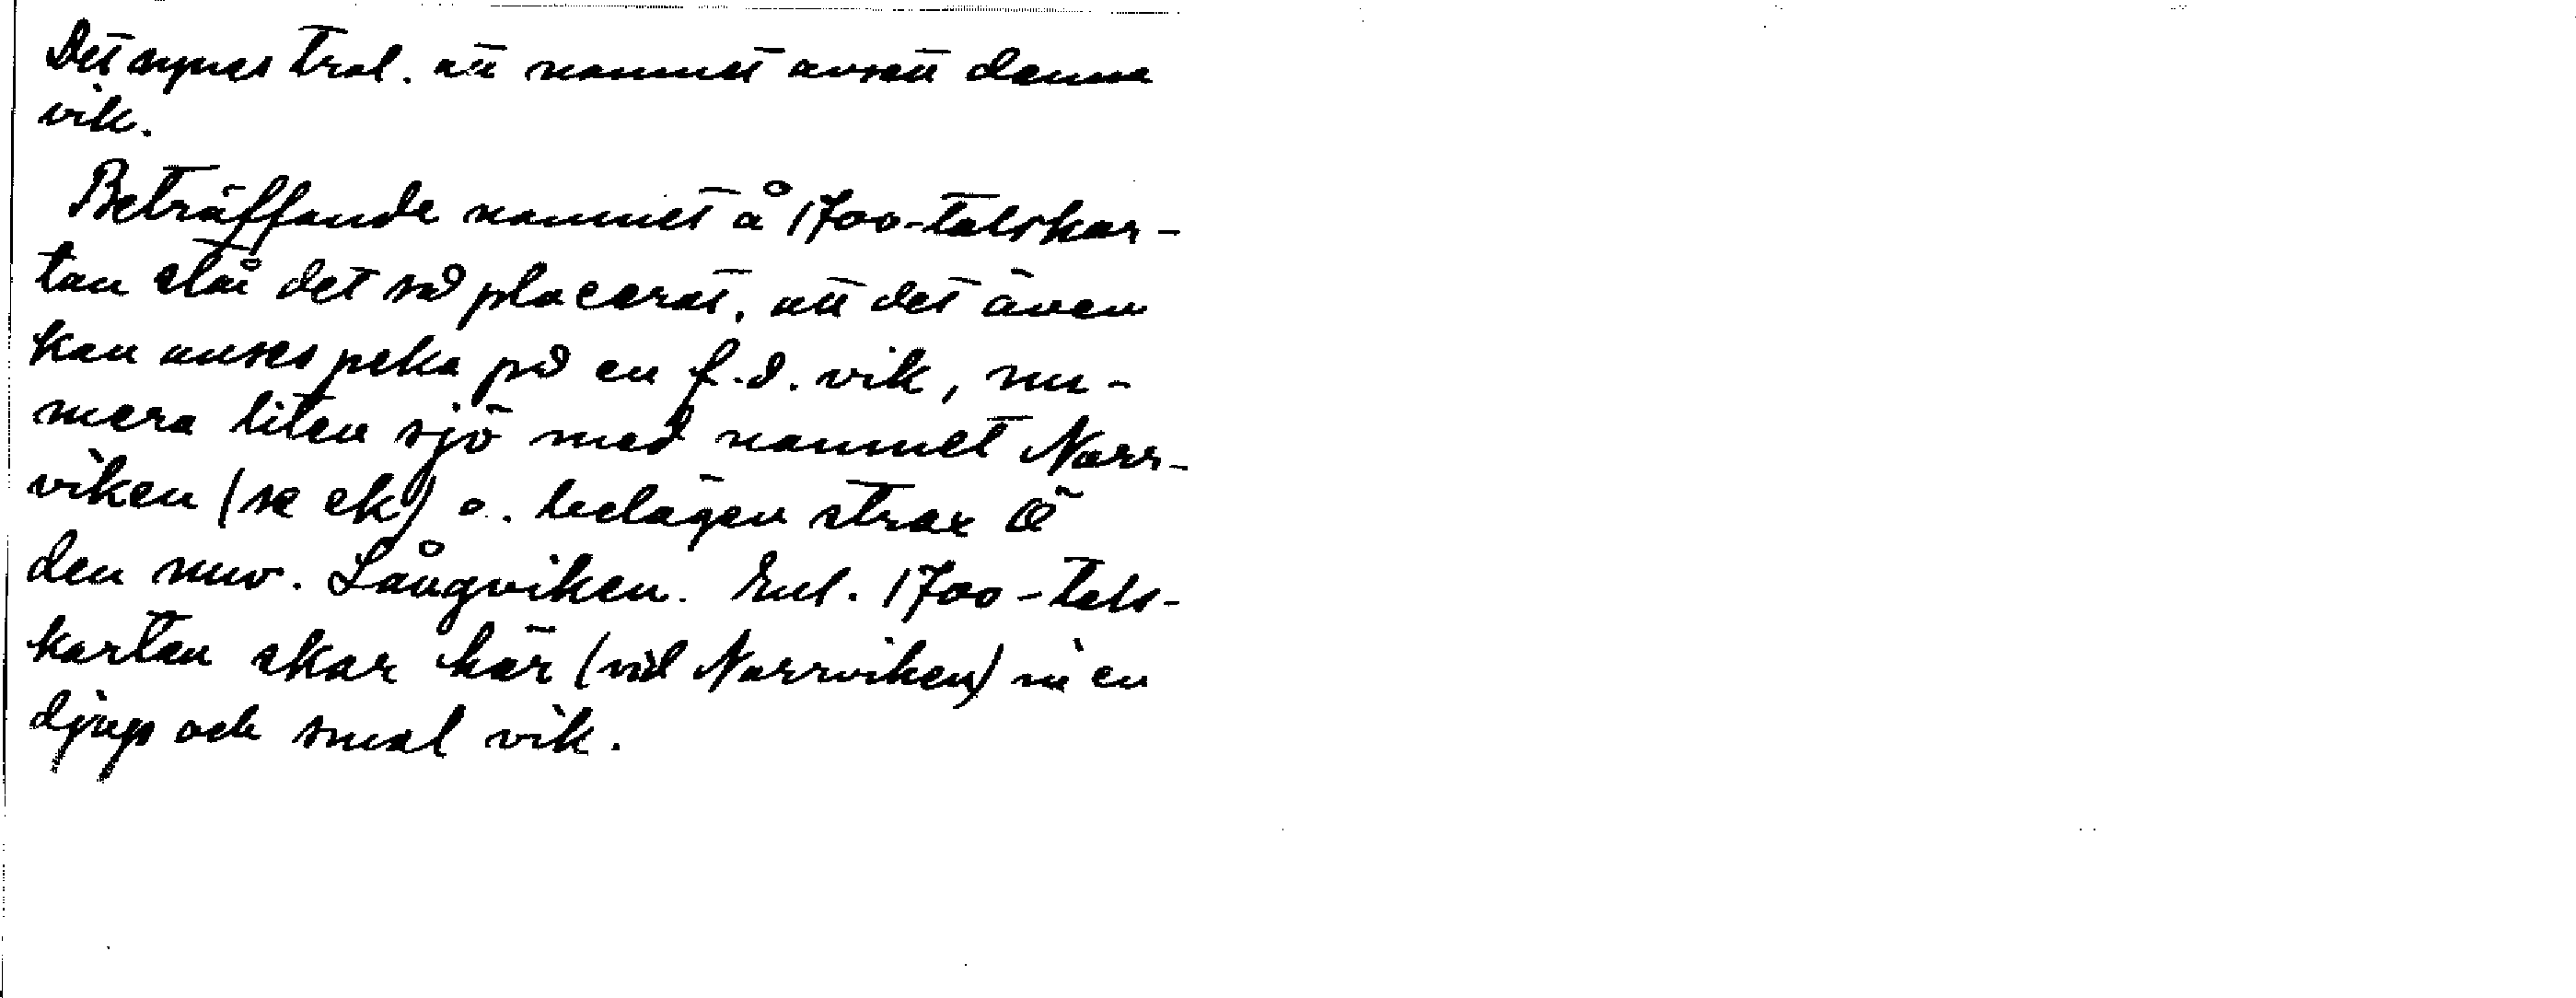 Det synes trol. att namnet avsett denna
vik.
Beträffande namnet å 1700-talskar-
tan står det så placerat, att det även
kan anses peka på en f.d. vik, nu-
mera liten sjö med namnet Norr-
viken (se ek) o. belägen strax Ö
den nuv. Långviken. Enl. 1700-tals-
kartan skar här (vid Norrviken) in en
djup och smal vik.